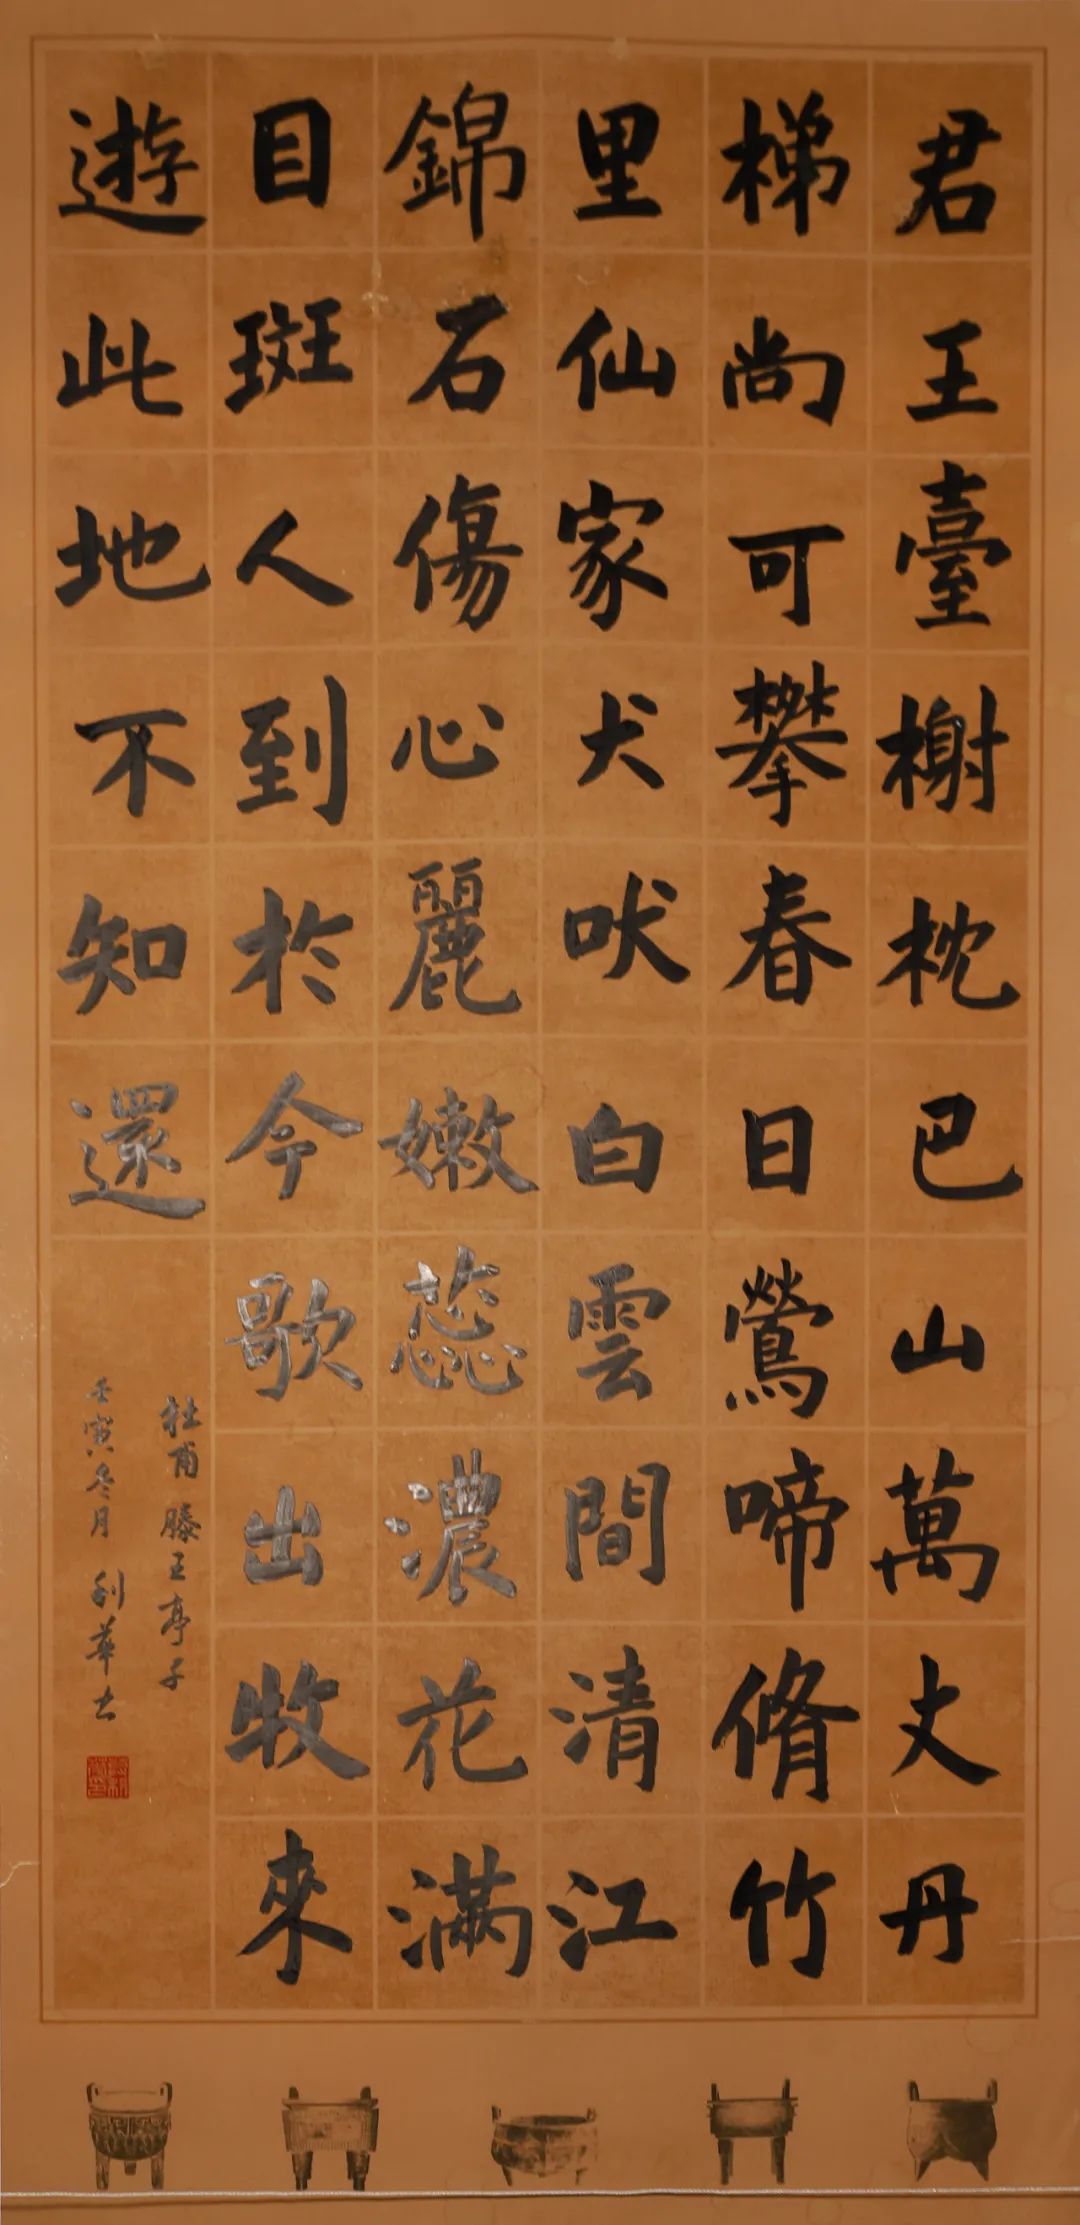 君王臺榭枕巴山萬丈丹
梯尚可攀春日鶯啼脩竹
里仙家犬吠白雲間清江
錦石傷心麗嫩蕊濃花滿
目斑人到於今歌出牧來
遊此地不知還
杜甫滕王亭子
壬寅冬月利華书